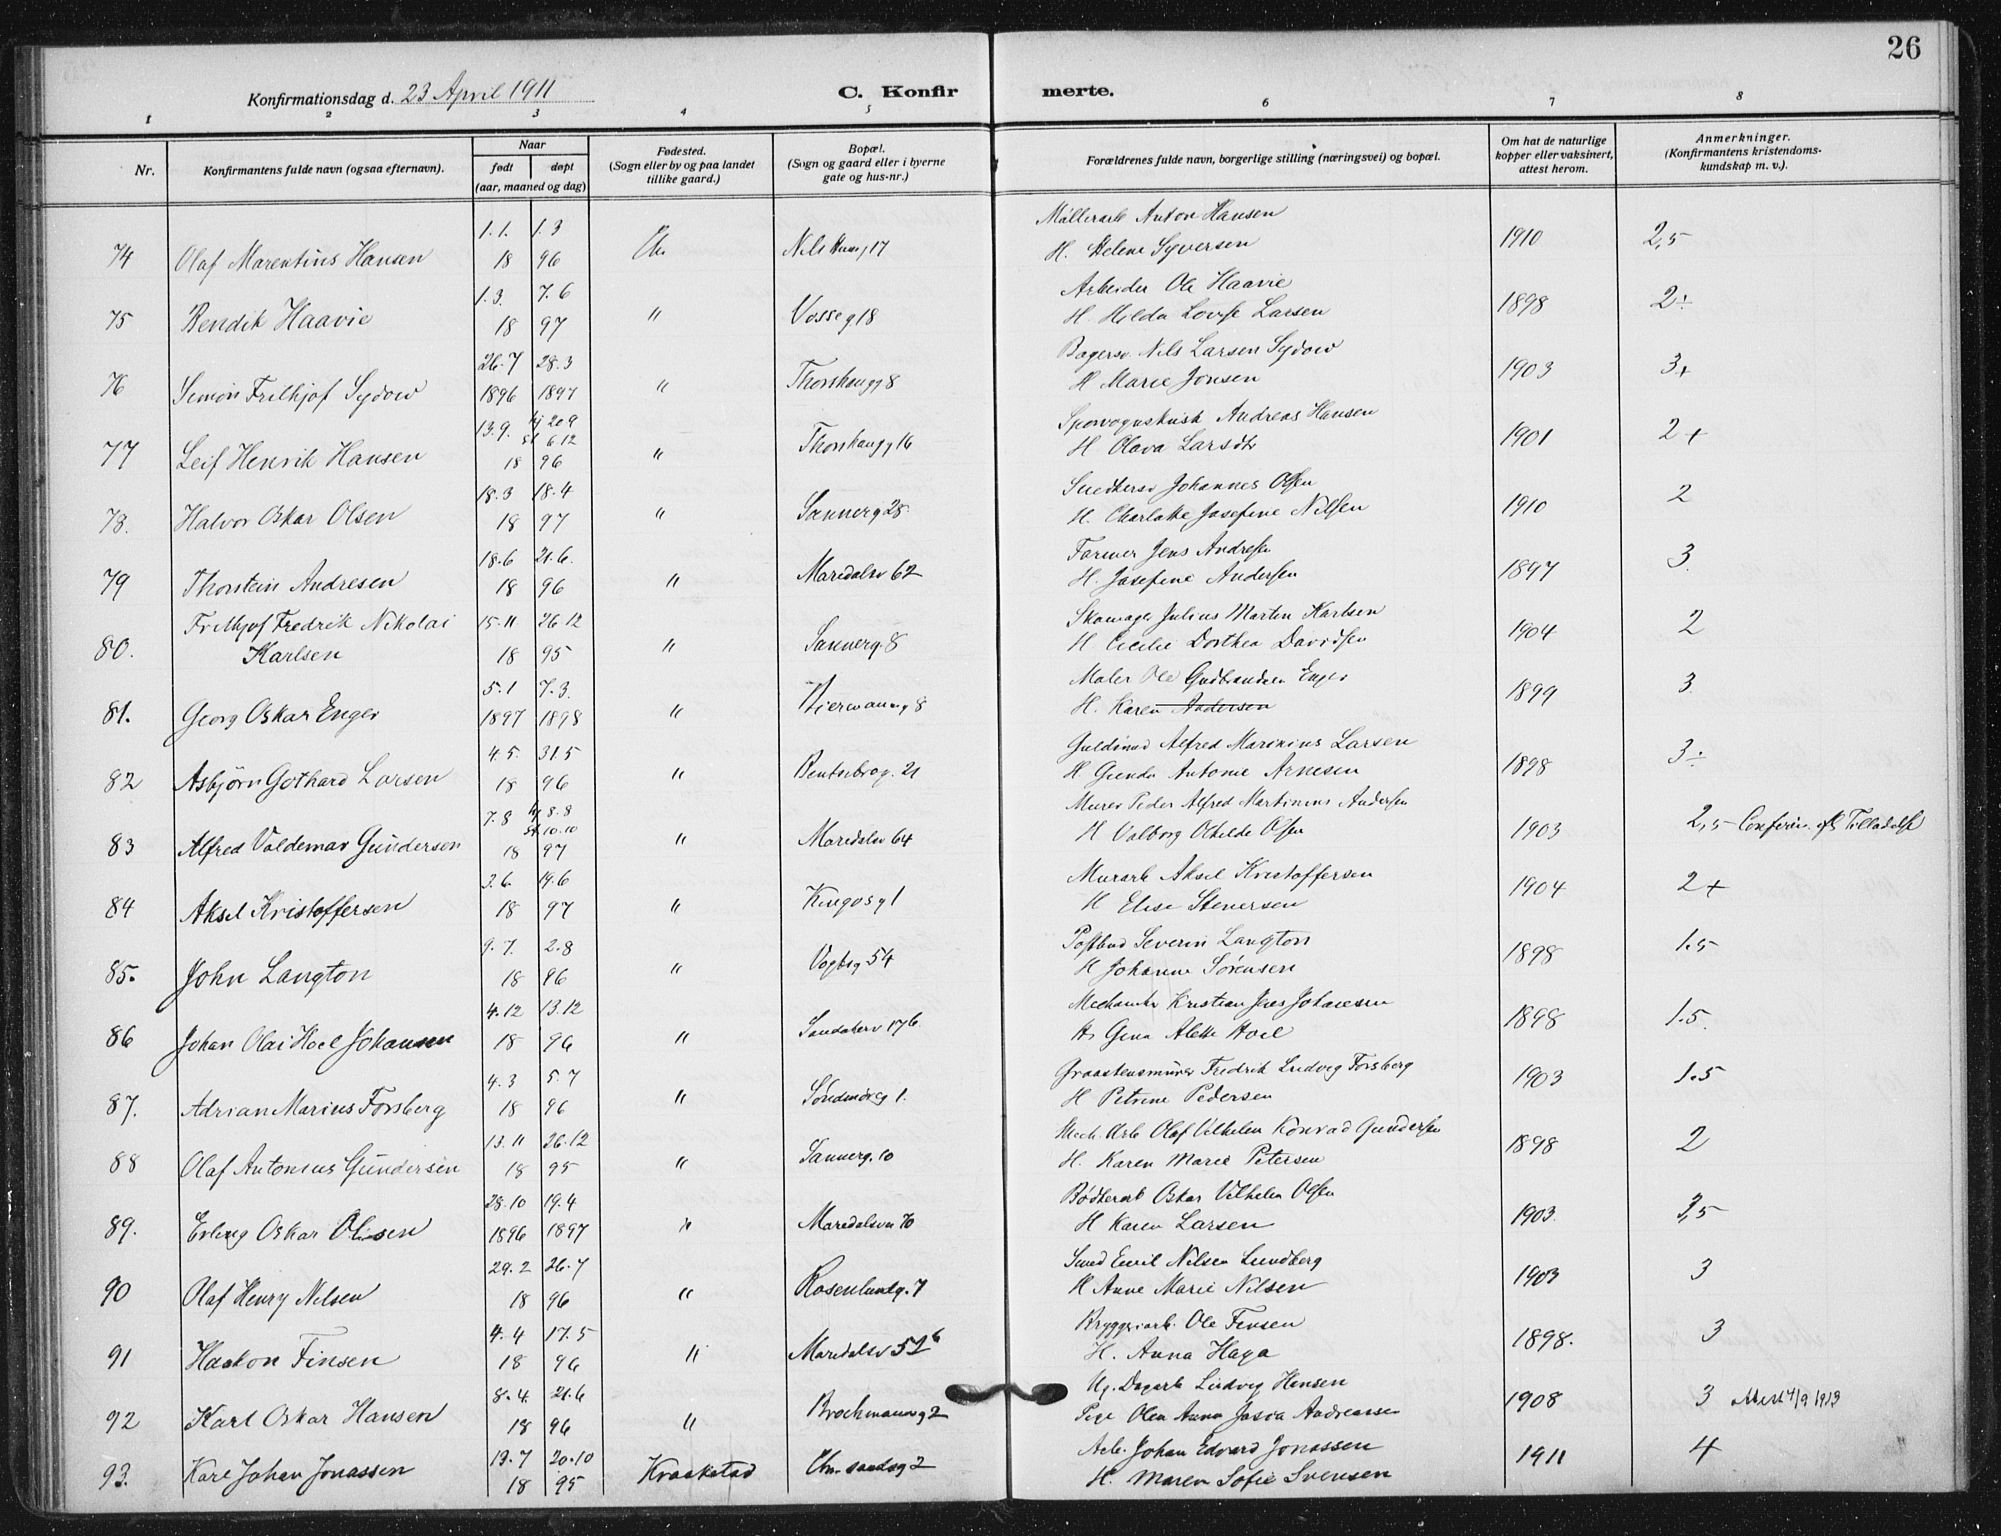 26
Konfirmationsdag d. 23 April 1911 C. Konfir merte.
1 2 3 4 5 6 7 8
Nr. Konfirmantens fulde navn (ogsaa efternavn). Naar født døpt (aar, maaned og dag) Fødested. (Sogn eller by og paa landet tillike gaard.) Bopæl. (Sogn og gaard eller i byerne gate og hus-nr.) Forældrenes fulde navn, borgerlige stilling (næringsvei) og bopæl. Om hat de naturlige kopper eller vaksinert, attest herom. Anmerkninger. (Konfirmantens kristendoms- kundskap m. v.).
1.1. 1.3 Møllerarb Anton Hansen
74 Olaf Marentius Hansen 18 96 Chr Nils Huusg 17 H. Helene Syversen 1910 2,5
1.3. 7.6 Arbeider Ole Haavie
75 Bendik Haavie 18 97 " Vosseg 18 H. Hilda Lovise Larsen 1898 2÷
26.7 28.3 Bagersv. Nils Larsen Sydow
76 Simon Frithjof Sydow 1896 1897 " Thorshaugg 8 H Marie Jonsen 1903 3+
13.9. hj 20.9 st 6.12 Sporvognskusk Andreas Hansen
77 Leif Henrik Hansen 18 96 " Thorshaugg 16 H Olava Larsdtr 1901 2+
18.3 18.4 Snedkersv Johannes Olsen
78. Halvor Oskar Olsen 18 97 " Sannerg 28 H. Charlotte Josefine Nilsen 1910 2
18.6 21.6. Farmer Jens Andresen
79 Thorstein Andresen 18 96 " Maridalsv 62 H. Josefine Andersen 1897 3
Frithjof Fredrik Nikolai 15.11 26.12 Skomager Julius Martin Karlsen
80. Karlsen 18 95 " Sannerg. 8 H Cecilie Dorthea Davidsen 1904 2
5.1 7.3. Maler Ole Gudbrandsen Enger
81. Georg Oskar Enger 1897 1898 " 8 H. Karen Andersen 1899 3
4.5. 31.5 Alfred Marinius Larsen
82 Asbjörn Gothard Larsen 18 96 " Bentsebrog. 21 H Gunda Antonie Arnesen 1898 3÷
7.8 hj 8.8 st 10.10 Murer Peder Alfred Martinius Andersen
83 Alfred Valdemar Gundersen 18 97 " Maridalsv 64 H Valborg Othilde Olsen 1903 2,5 Confirm. eft Tilladelse
3.6. 14.6 Murarb Aksel Kristoffersen
84 Aksel Kristoffersen 18 97 " Kingosg 1 H Elise Stenersen 1904 2+
9.7. 2.8 Postbud Severin Langton
85. John Langton 18 96 " Vogtsg 54 H Johanne Sørensen 1898 1.5
4.12 13.12 Mechaniker Kristian Jens Johansen
86 Johan Olai Hoel Johansen 18 96 " Sandakerv 17b H. Gina Alette Hoel 1898 1.5.
4.3 5.7 Graastensmurer Fredrik Ludvig Forsberg
87. Adrian Marius Forsberg 18 96 " Søndmørsg 1. H Petrine Pedersen 1903 1.5
13.11 26.12 Mech. Arb Olaf Vilhelm Konrad Gundersen
88 Olaf Antonius Gundersen 18 95 " Sannerg. 10 H. Karen Marie Petersen 1898 2
28.10 19.4 Bødkerarb Oskar Vilhelm Olsen
89. Erling Oskar Olsen 1896 1897 " Maridalsvn 70 H Karen Larsen 1903. 2,5
29.2 26.7 Smed Emil Nilsen Lundberg
90 Olaf Henry Nilsen 18 96 " Rosenlundg. 7 H Anne Marie Nilsen 1903 3
4.4 17.5 Bryggeriarb. Ole Finsen
91 Haakon Finsen 18 96 " Maridalsv 51b H. Anna Haga 1898. 3
8.4. 21.6 Ug. Dagarb Ludvig Hansen
92 Karl Oskar Hansen 18 96 " Brochmannsg 2 Pige Olea Anna Andreassen 1908 3 Attest 4/9 1913
19.7 20.10 Arb. Johan Edvard Jonassen
93. Karl Johan Jonassen 18 95 Kraakstad Chr.sandsg 2 H. Maren Sofie Svensen 1911 4